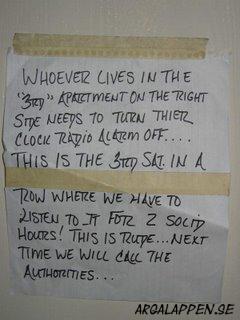 WHOEVER LIVES IN THE
"3RD" APARTMENT ON THE RIGHT
SIDE NEEDS TO TURN THIER
CLOCK RADIO ALARM OFF....
THIS IS THE 3RD SAT. IN A
ROW WHERE WE HAVE TO
LISTEN TO IT FOR 2 SOLID
HOURS! THIS IS RUDE...NEXT
TIME WE WILL CALL THE
AUTHORITIES...
ARGALAPPEN.SE